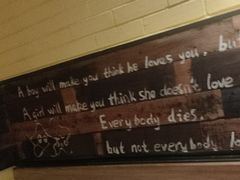 A boy will make you think he loves you, bu
A girl will make you think she doesn't love
Everybody dies.
but not everybody lo